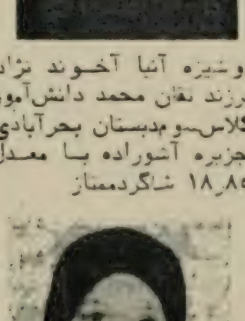 دوشیزه آنیا آخوند نژاد
فرزند نقان محمد دانش‌آموز
کلاس سوم دبستان بحرآبادی
جزیره آشوراده با معدل
۱۸٫۸۵ شاگردممتاز